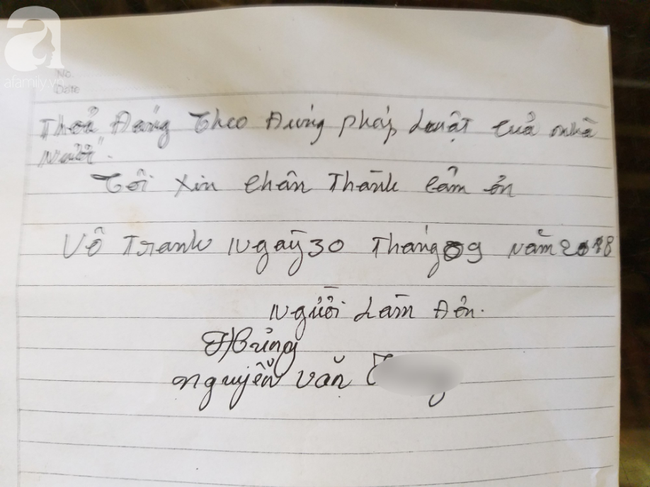 a
afamily.vn
No.
Date
Thoả Đáng Theo Đúng pháp Luật của nhà
nước.
Tôi xin chân Thành cảm ơn
Vô Tranh Ngày 30 Tháng 09 năm 2018
Người Làm Đơn.
Nguyễn Văn